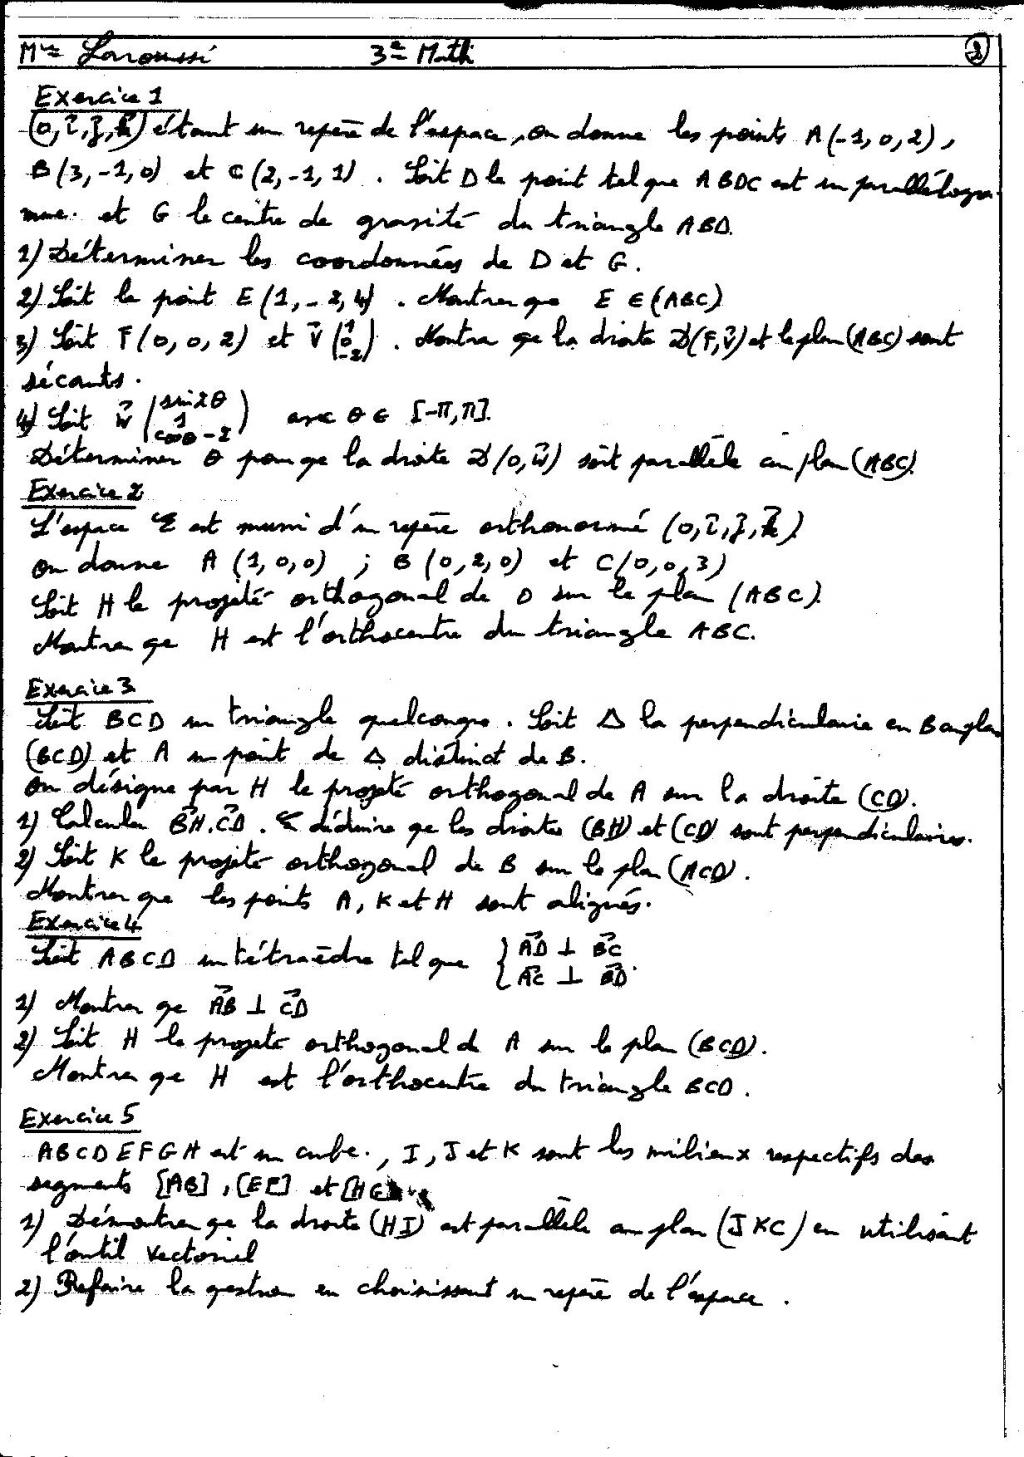 Mme Laroussi 3e Math 2
Exercice 1
(O,i⃗,j⃗,k⃗) étant un repère de l'espace, on donne les points A(-1,0,2),
B(3,-1,0) et C(2,-1,1). Soit D le point tel que ABDC est un parallélogra-
mme. et G le centre de gravité du triangle ABD.
1) Déterminer les coordonnées de D et G.
2) Soit le point E(1,-2,4). Montrer que E ∈ (ABC)
3) Soit F(0,0,2) et v⃗ (1 0 -2). Montrer que la droite D(F,v⃗) et le plan (ABC) sont
sécants.
4) Soit w⃗ (sin2θ 1 cosθ-2) avec θ ∈ [-π,π].
Déterminer θ pour que la droite D(O,w⃗) soit parallèle au plan (ABC).
Exercice 2
L'espace ℰ est muni d'un repère orthonormé (O,i⃗,j⃗,k⃗)
on donne A(1,0,0) ; B(0,2,0) et C(0,0,3)
Soit H le projeté orthogonal de O sur le plan (ABC).
Montrer que H est l'orthocentre du triangle ABC.
Exercice 3
Soit BCD un triangle quelconque. Soit Δ la perpendiculaire en B au plan
(BCD) et A un point de Δ distinct de B.
On désigne par H le projeté orthogonal de A sur la droite (CD).
1) Calculer BH⃗.CD⃗. En déduire que les droites (BH) et (CD) sont perpendiculaires.
2) Soit K le projeté orthogonal de B sur le plan (ACD).
Montrer que les points A, K et H sont alignés.
Exercice 4
Soit ABCD un tétraèdre tel que { AD⃗ ⊥ BC⃗
AC⃗ ⊥ BD⃗.
1) Montrer que AB⃗ ⊥ CD⃗
2) Soit H le projeté orthogonal de A sur le plan (BCD).
Montrer que H est l'orthocentre du triangle BCD.
Exercice 5
ABCDEFGH est un cube., I, J et K sont les milieux respectifs des
segments [AB], [EF] et [HG]
1) Démontrer que la droite (HI) est parallèle au plan (JKC) en utilisant
l'outil vectoriel
2) Refaire la question en choisissant un repère de l'espace.